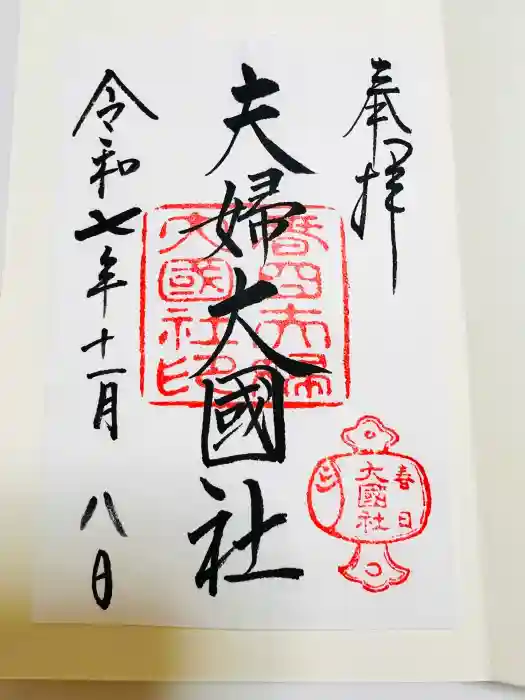 奉拝
春日
大國社
夫婦大國社
春日夫婦
大國社印
令和七年十一月八日